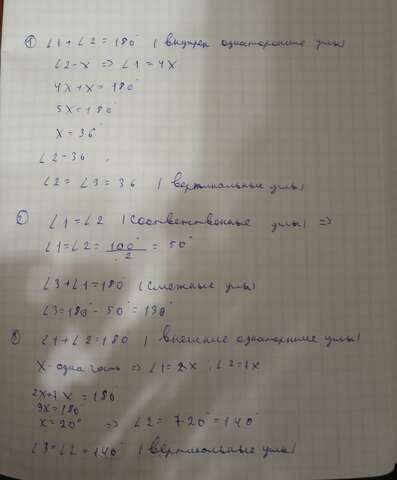 ① ∠1+∠2=180° (внутрен односторонние углы)
∠2-x => ∠1=4x
4x+x=180°
5x=180°
x=36°
∠2-36
∠2=∠3=36 (вертикальные углы)
② ∠1=∠2 (соответственные углы) =>
∠1=∠2=100°/2=50°
∠3+∠1=180° (смежные углы)
∠3=180°-50°=130°
③ ∠1+∠2=180 (внешние односторонние углы)
X-одна часть => ∠1=2x, ∠2=7x
2x+7x=180°
9x=180°
x=20° => ∠2=7·20°=140°
∠3=∠2=140° (вертикальные углы)